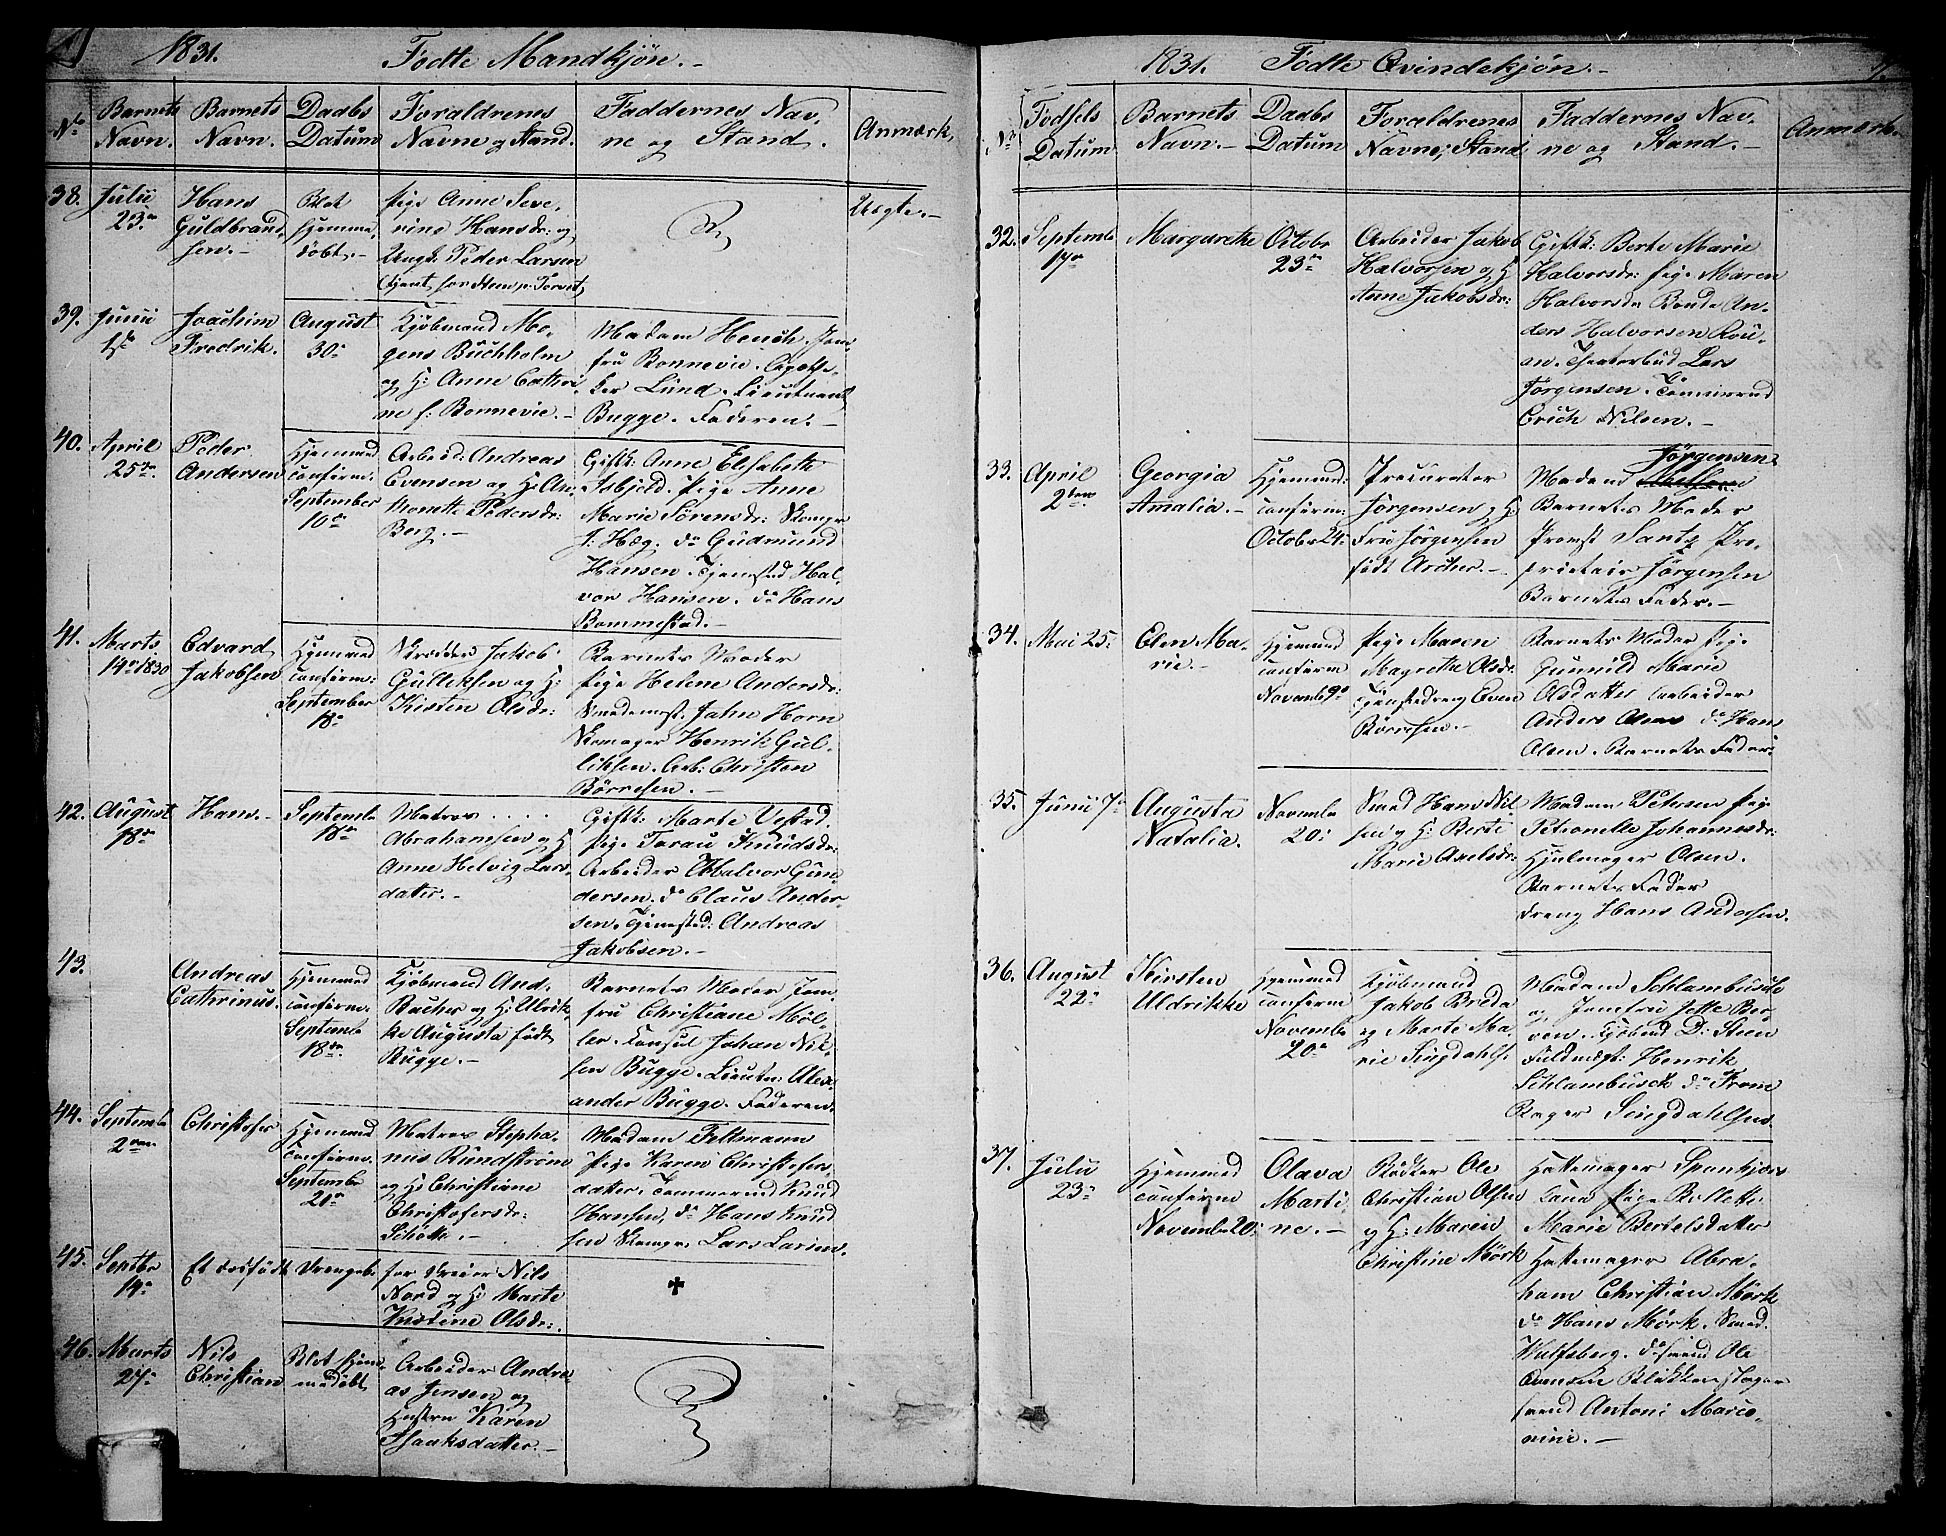 1831. Födte Mandkjön.-
No Barnets Navn. Barnets Navn. Daabs Datum Foraldrenes Navne og Stand. Faddernes Navne og Stand. Anmærk,
38. Julii 23de
Hans
Guldbrand
sen.-
Blot
hjemme
döbt.-
Pige Anne Seve-
rine Hansdr: og
Ungk. Peder Larsen
Uægte.-
39. Junii
Joachim
Fredrik.
August
30te
Kjöbmand Mo-
gens Buchholm
og H: Anne Cathri
ne f. Bonnevie.-
Madam Heuch. Jom-
fru Bonnevie. Apothe-
ker Lund. Lieutnant
Bugge. Faderen.-
40. April
25de
Peder
Andersen
Hjemmed
confirm.
September
10de
Arbeid: Andreas
Evensen og H: An-
Monette Pedersdr:
Berg.-
Giftk: Anne Elisabeth
Asbjeld. Pige Anne
Marie Sörensdr: Skomgr
J: Hæg. do Gudmund
Hansen. Tjenisted Hal-
vor Hansen. do Hans
Bommestad.-
41. Marts
14de 1830
Edvard
Jakobsen
Hjemmed
confirm:
September
18de
Skredder Jakob
Gulliksen og H:
Kirsten Olsdr:
Barnets Moder
Pige Helene Andersdr:
Smedemest. John Horn
Skomager Henrik Gul-
liksen. Arb: Christen
Börresen.-
42. August
18de
Hans.-
Septembr
18de
Matros . . . .
Abrahamsen og H
Anne Helvig Lars-
datter.-
Giftk: Marte Vestad.
Pige Torau Knudsdr:
Arbeider Halvor Gun-
dersen. do Claus Ander-
sen. Tjenested: Andreas
Jakobsen.-
43.
Andreas
Cathrinus.
Hjemmed
confirm.
Septembr
18de
Kjöbmand And.
Backer og H: Ulrik-
ke Augusta født
Bugge.-
Barnets Moder Jom
fru Christiane Möl-
ler. Consul Johan Nil-
sen Bugge. Lieutn: Alex-
ander Bugge. Faderen.
44. Septembr
2den
Christofer
Hjemmed
confirm.
Septembr
20de
Matros Stepha-
nus Rundström
og H: Christiane
Christofersdr:
Schötte.-
Madam Feltmann
Pige Karen Christofers
datter. Tömmermd Knud
Hansen, do Hans Knud
sen Skomgr. Lars Larsen.
45. Septbr
14de
Et dødfödt Drengeb. for Dreier Nils
Nord og H: Marte
Kristine Olsdr:
46. Marts
27de
Nils
Christian
Blot hjem-
medöbt
Arbeider Andre-
as Jensen og
Hustru Karen
Isaaksdatter.-
1831. Födte Qvindekjön.-
No Födsels Datum Barnets Navn.- Daabs Datum Foraldrenes Navne; Stand Faddernes Navne og Stand.- Anmærk.
32. Septembr
17de
Margarethe
Octobr
23de
Arbeider Jakob
Halvorsen og H
Anne Jakobsdr:
Giftk: Berte Marie
Halvorsdr: Pige Maren
Halvorsdr Bonde An-
ders Halvorsen Rou-
an. Theaterbud Lars
Jörgensen. Tömmermd
Erich Nilsen.-
33. April
2den
Georgia
Amalia.-
Hjemmed:
confirm:
October 24de
Procurator
Jörgensen og H:
Fru Jörgensen
født Archer.-
Jörgensen
Madam
Barnets Moder
Provst Lantz Pro-
prietair Jörgensen
Barnets Fader.-
34. Mai 25:
Elen Ma-
rie.-
Hjemmed
confirm
Novembr 9de
Pige Maren
Magrethe Olsdr
Tjenstedreng Even
Börresen.-
Barnets Moder Pig:
Gunnild Marie
Olsdatter Arbeider
Anders Olsen do Hans
Olsen. Barnets Fader.
35. Junii 7de
Augusta
Natalia.
Novembr
20:
Smed Hans Nil-
sen og H: Berte
Marie Axelsdr:
Madam Petersen Pige
Petronelle Johannesdr:
Hjulmager Olsen.
Barnets Fader
dreng Hans Andersen.
36. August
22de
Kirsten
Uldrikke
Hjemmed
confirm
Novembr
20de
Kjöbmand
Jakob Breda
og Marte Ma-
rie Lingdahls.
Madam Schlambusch
og Jomfru Jette Ber-
ven. Kjöbmd D: Steen
Fuldmægt: Henrik
Schlambusch do From
Bager Lingdahlsen
37. Julii
23de
Hjemmed
confirm
Novembr 20:
Olava
Marti-
ne.-
Bödker Ole
Christian Olsen
og H: Maren
Christine Mörk
Hattemager Spenkjær
Marie Bertelsdatter
Hattemager Abra-
ham Christian Mörk
do Hans Mörk. Smed
Wulfsberg. do svend Ole
Evensen Blikkenslager
svend Antoni Marco-
nini.-